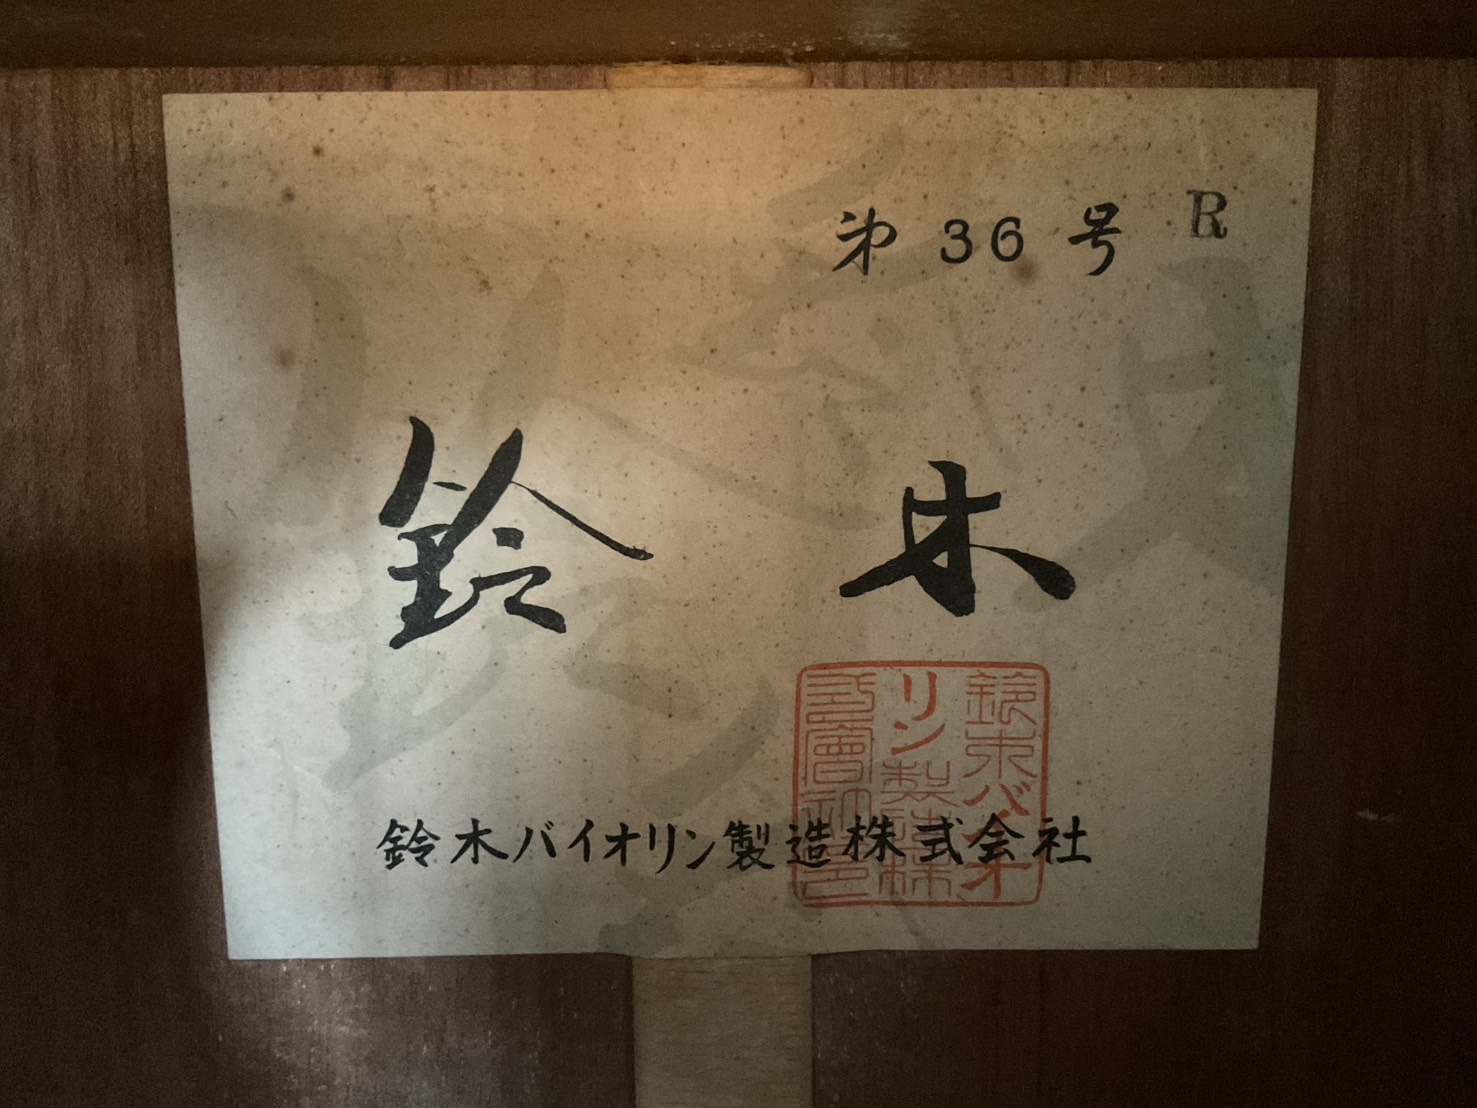 第 36 号 R
鈴木
鈴木バイオリン製造株式会社
鈴木バイオ
リン製造株
式會社之印